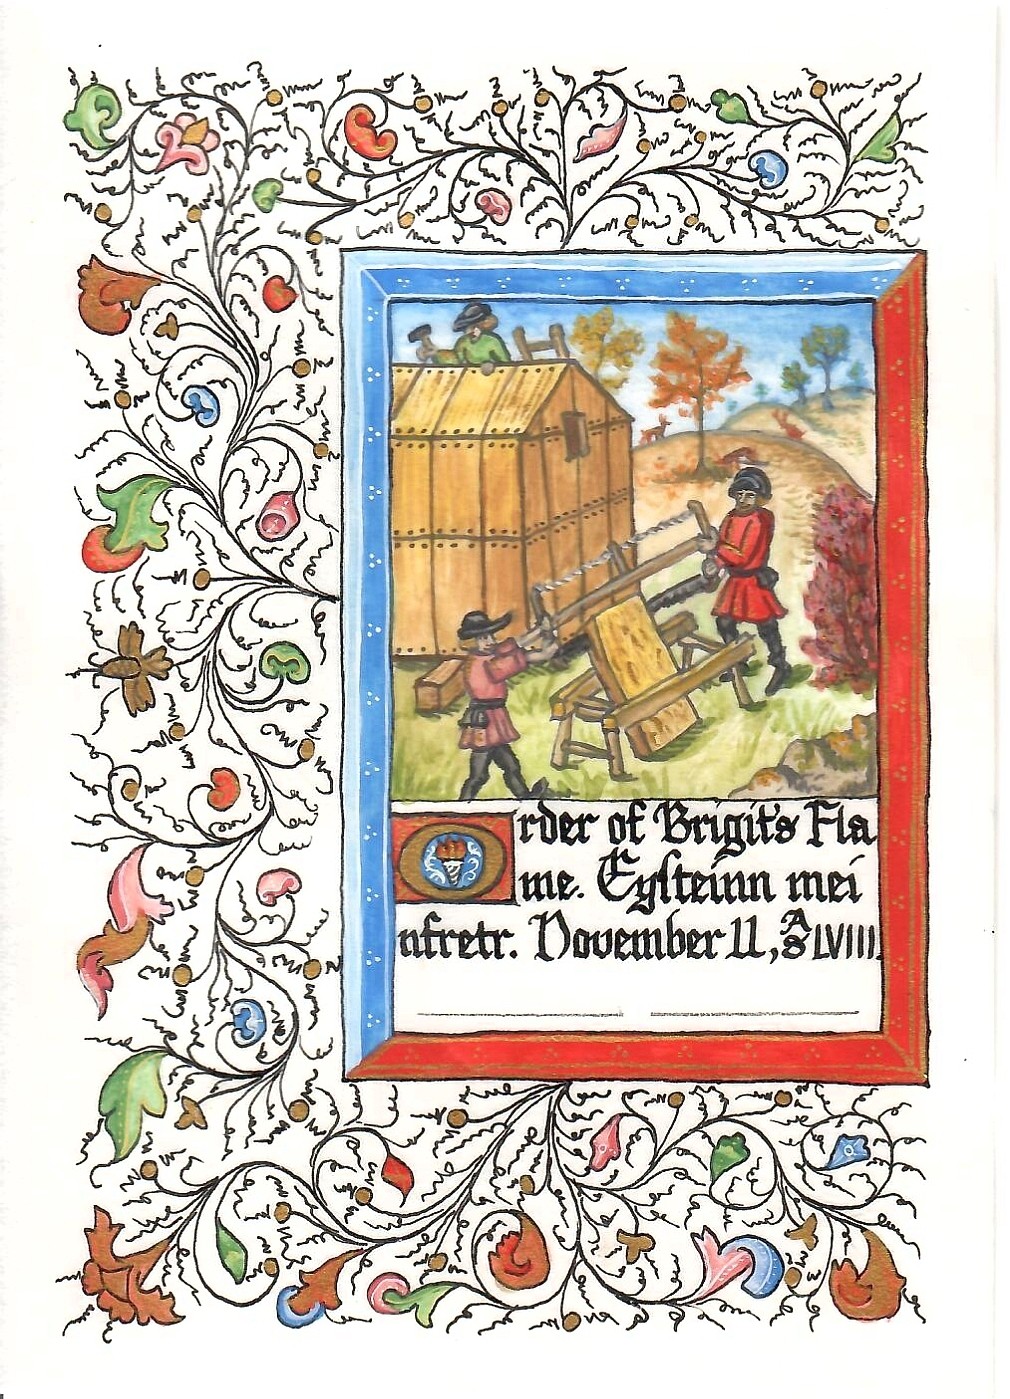 Order of Brigit's Fla
me. Eysteinn mei
nfretr. November 11, AS LVIII.